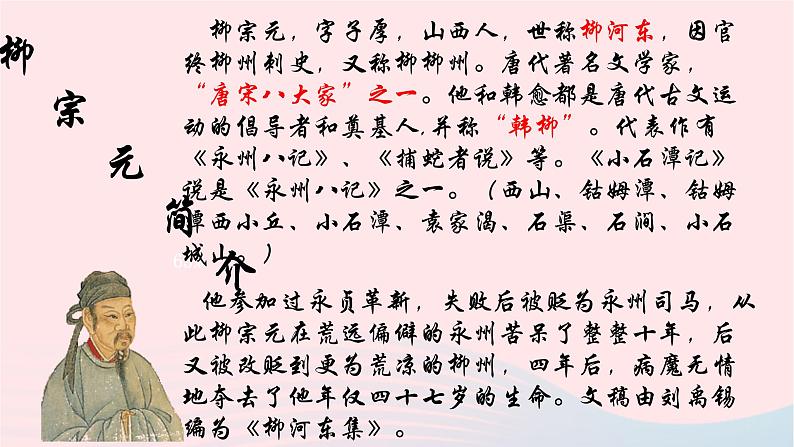 柳宗元简介
柳宗元，字子厚，山西人，世称柳河东，因官
终柳州刺史，又称柳柳州。唐代著名文学家，
“唐宋八大家”之一。他和韩愈都是唐代古文运
动的倡导者和奠基人,并称“韩柳”。代表作有
《永州八记》、《捕蛇者说》等。《小石潭记》
说是《永州八记》之一。（西山、钴姆潭、钴姆
潭西小丘、小石潭、袁家渴、石渠、石涧、小石
城山。）
他参加过永贞革新，失败后被贬为永州司马，从
此柳宗元在荒远偏僻的永州苦呆了整整十年，后
又被改贬到更为荒凉的柳州，四年后，病魔无情
地夺去了他年仅四十七岁的生命。文稿由刘禹锡
编为《柳河东集》。